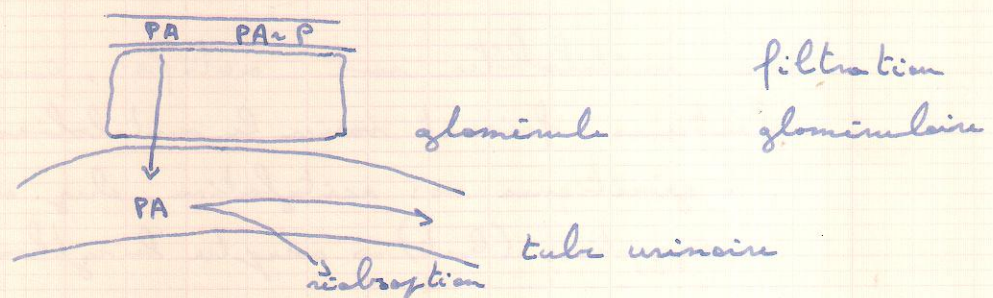 PA PA~P
filtration
glomérule glomérulaire
PA
tube urinaire
réabsoption